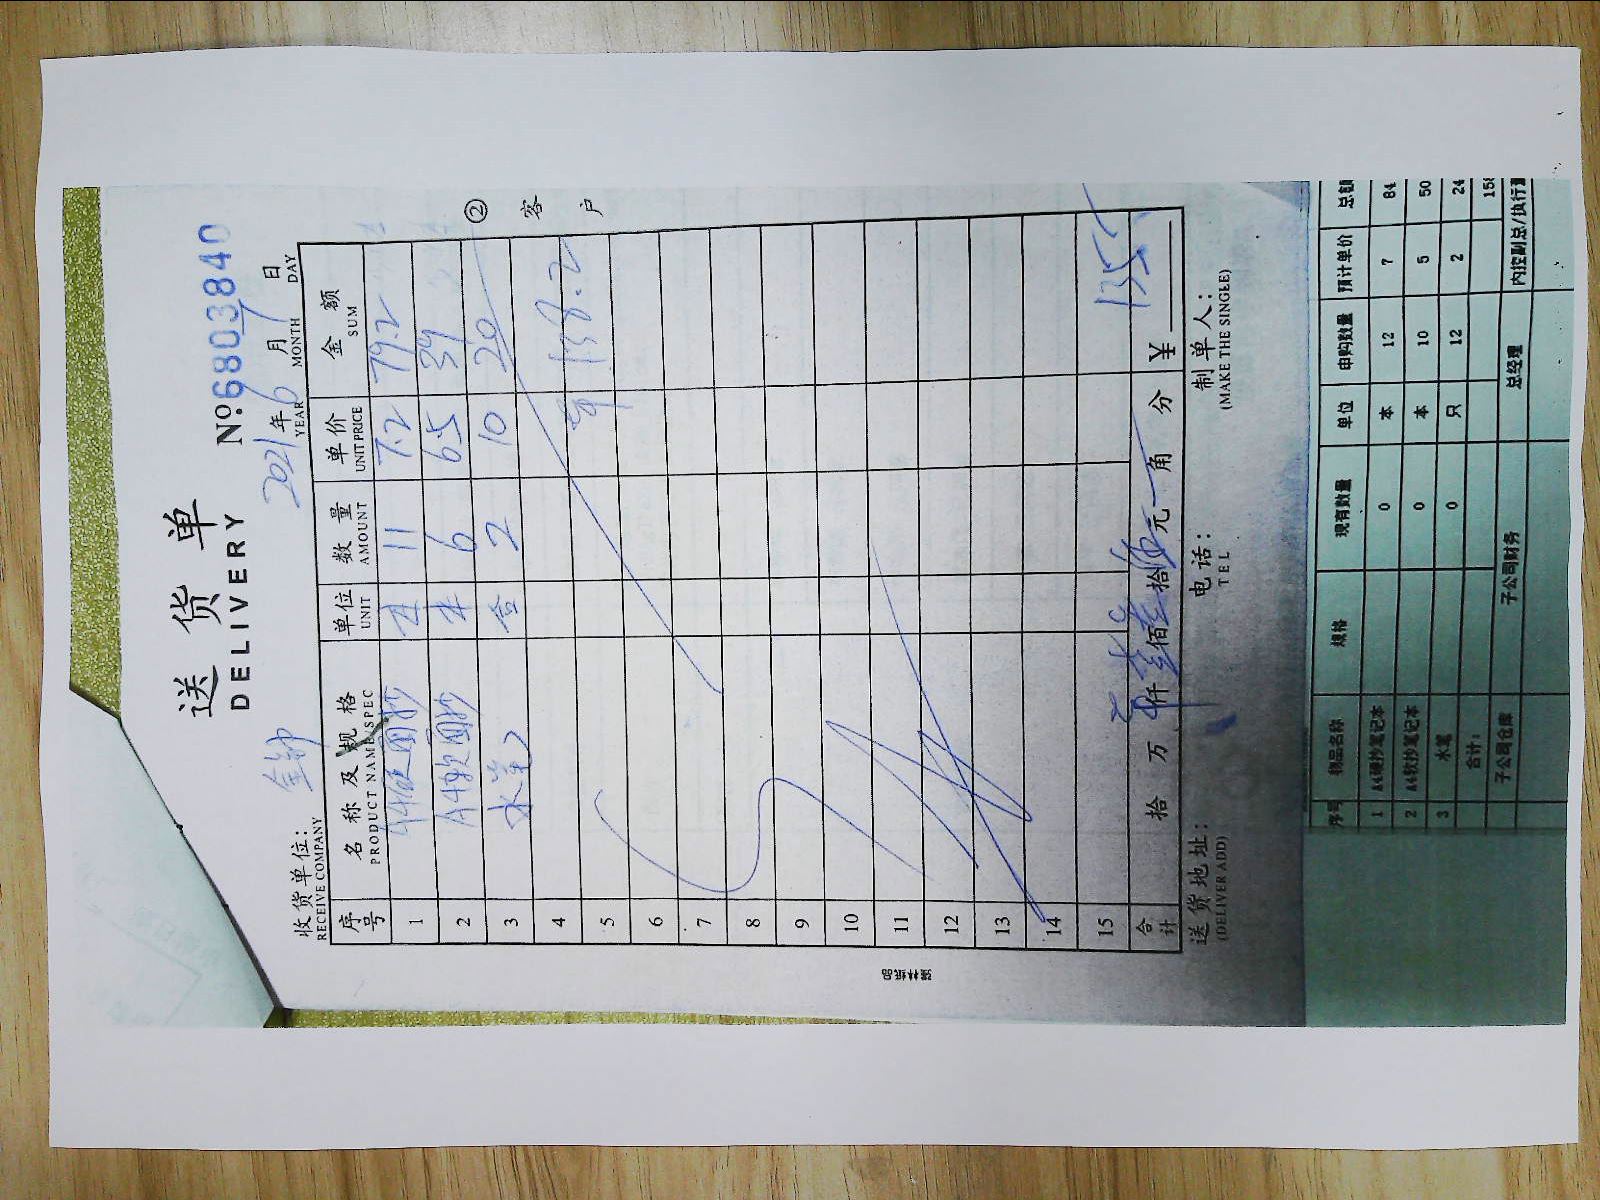 送货单
DELIVERY
№6803840
2021年6月7日
YEAR MONTH DAY
收货单位：金钟
RECEIVE COMPANY
②客户
序号 名称及规格 单位 数量 单价 金额
PRODUCT NAME SPEC UNIT AMOUNT UNIT PRICE SUM
1 A4硬面抄 本 11 7.2 79.2
2 A4软面抄 本 6 6.5 39
3 水笔 盒 2 10 20
4
5 138.2
6
7
8
9
10
11
12
13
14
15
合计 拾 万 仟 佰 拾 伍元 角 分 ¥ 135
送货地址： 电话： 制单人：
(DELIVER ADD) TEL (MAKE THE SINGLE)
序号 物品名称 规格 现有数量 单位 申购数量 预计单价 总额
1 A4硬抄笔记本 0 本 12 7 84
2 A4软抄笔记本 0 本 10 5 50
3 水笔 0 只 12 2 24
合计： 158
子公司仓库 子公司财务 总经理 内控副总/执行